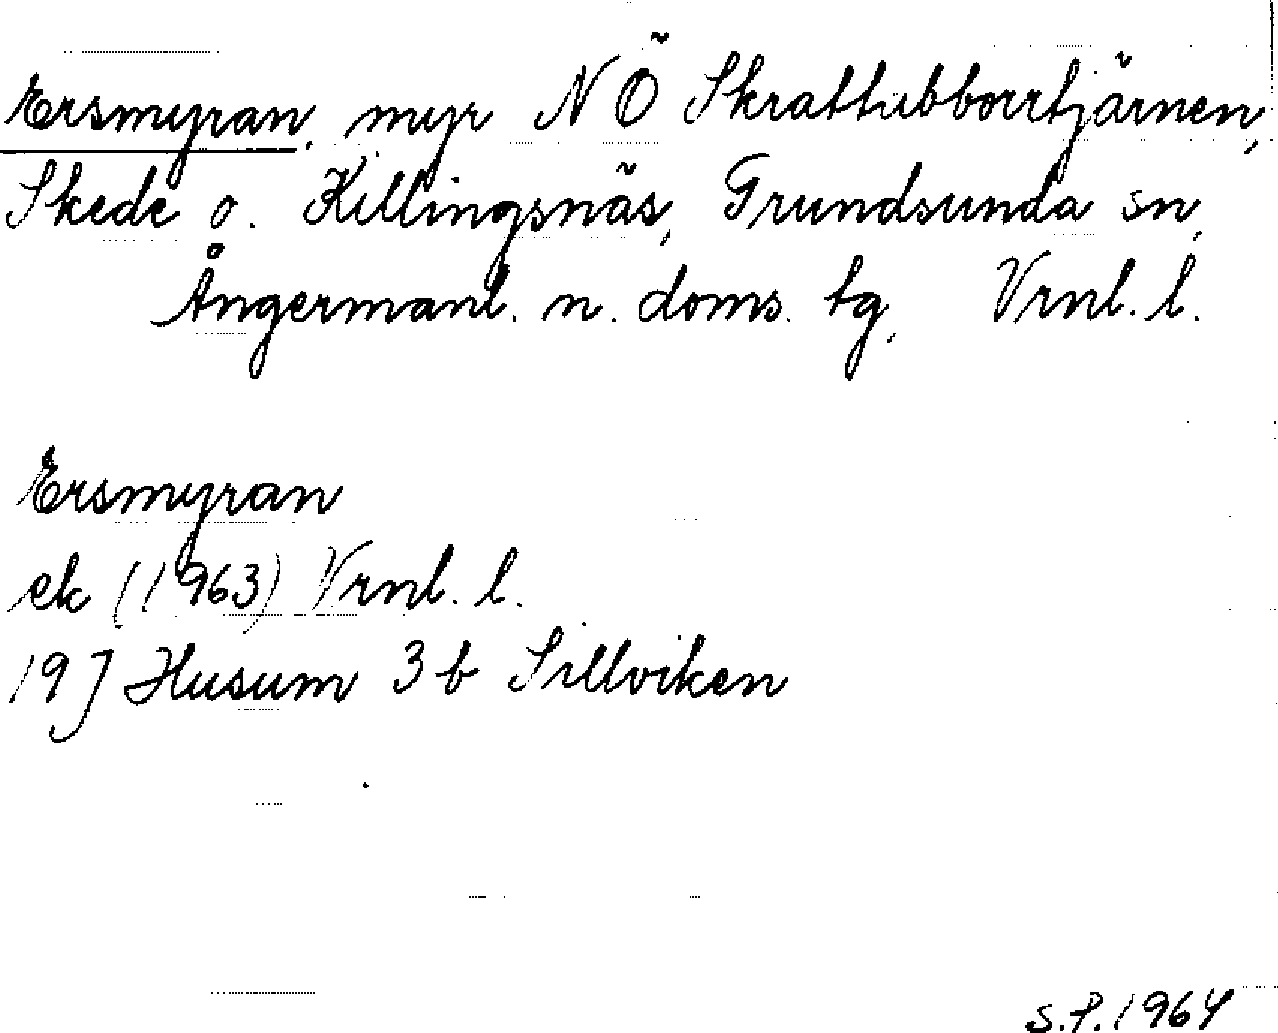 Ersmyran, myr NÖ Skrattabborrtjärnen,
Skede o. Killingsnäs, Grundsunda sn,
Ångermanl. n. doms. tg, Vrnl. l.
Ersmyran
ek (1963) Vrnl. l.
19J Husum 3b Sillviken
S.P. 1964